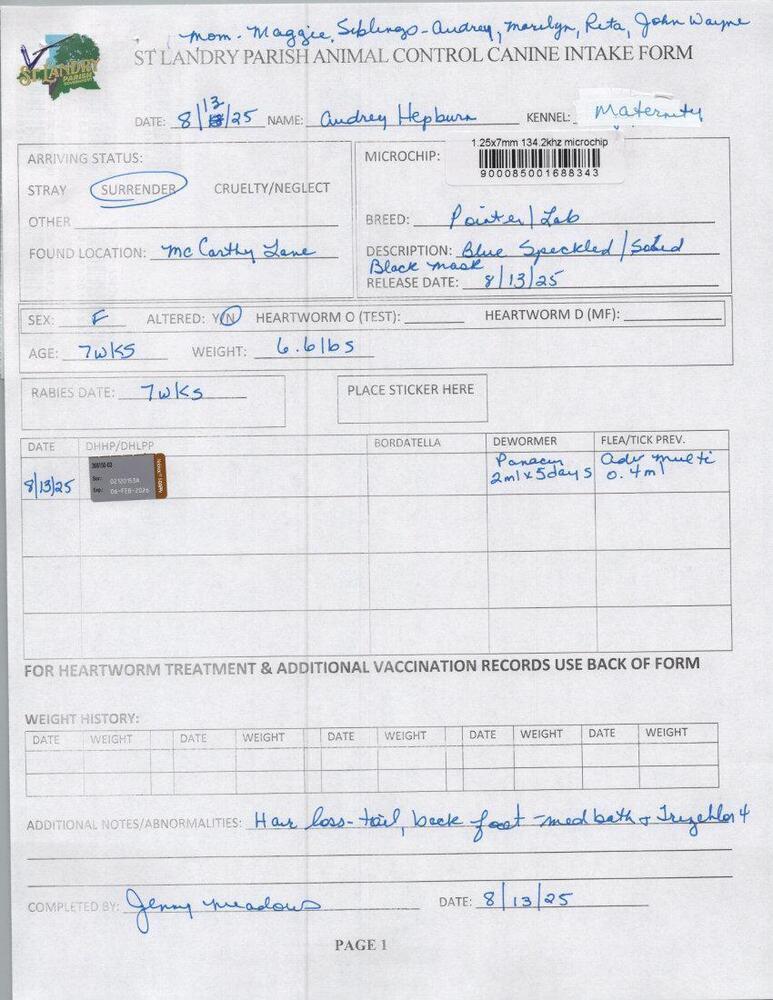 mom - Maggie, Siblings - Audrey, Marilyn, Reta, John Wayne
ST LANDRY PARISH ANIMAL CONTROL CANINE INTAKE FORM
ST LANDRY
PARISH
DATE: 8/13/25 NAME: Audrey Hepburn KENNEL: Maternity
ARRIVING STATUS:
STRAY SURRENDER CRUELTY/NEGLECT
OTHER
FOUND LOCATION: Mc Carthy Lane
MICROCHIP: 1.25x7mm 134.2khz microchip
900085001688343
BREED: Pointer/Lab
DESCRIPTION: Blue Speckled/
Black mask
RELEASE DATE: 8/13/25
SEX: F ALTERED: Y/N HEARTWORM O (TEST): HEARTWORM D (MF):
AGE: 7wks WEIGHT: 6.6lbs
RABIES DATE: 7wks
PLACE STICKER HERE
DATE DHHP/DHLPP BORDATELLA DEWORMER FLEA/TICK PREV.
8/13/25
Ser: 02120153A
Exp: 06-FEB-2026
Panacur
2ml x 5days
adv multi
0.4ml
FOR HEARTWORM TREATMENT & ADDITIONAL VACCINATION RECORDS USE BACK OF FORM
WEIGHT HISTORY:
DATE WEIGHT DATE WEIGHT DATE WEIGHT DATE WEIGHT DATE WEIGHT
ADDITIONAL NOTES/ABNORMALITIES: Hair loss - tail, back foot - med bath + Trizchlor 4
COMPLETED BY: Jenny Meadows DATE: 8/13/25
PAGE 1